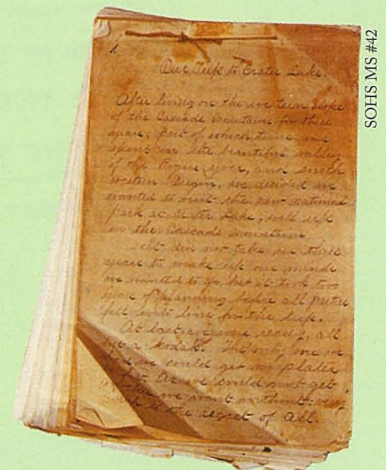 SOHS MS #42
1.
Our Trip to Crater Lake.
After living on the western slope
of the Cascade Mountains for three
years, part of which time was
spent in the beautiful valley
of the Rogue river, and south
western Oregon, we decided we
wanted to visit the new national
park at Crater Lake, well up
in the Cascade mountains.
It did not take us three
years to make up our minds
we wanted to go but it took two
years of planning before all
fell into line for the trip.
At last we were ready, all
but a kodak. The only one we
could get my plates
we could not get
so we went without
to the regret of all.